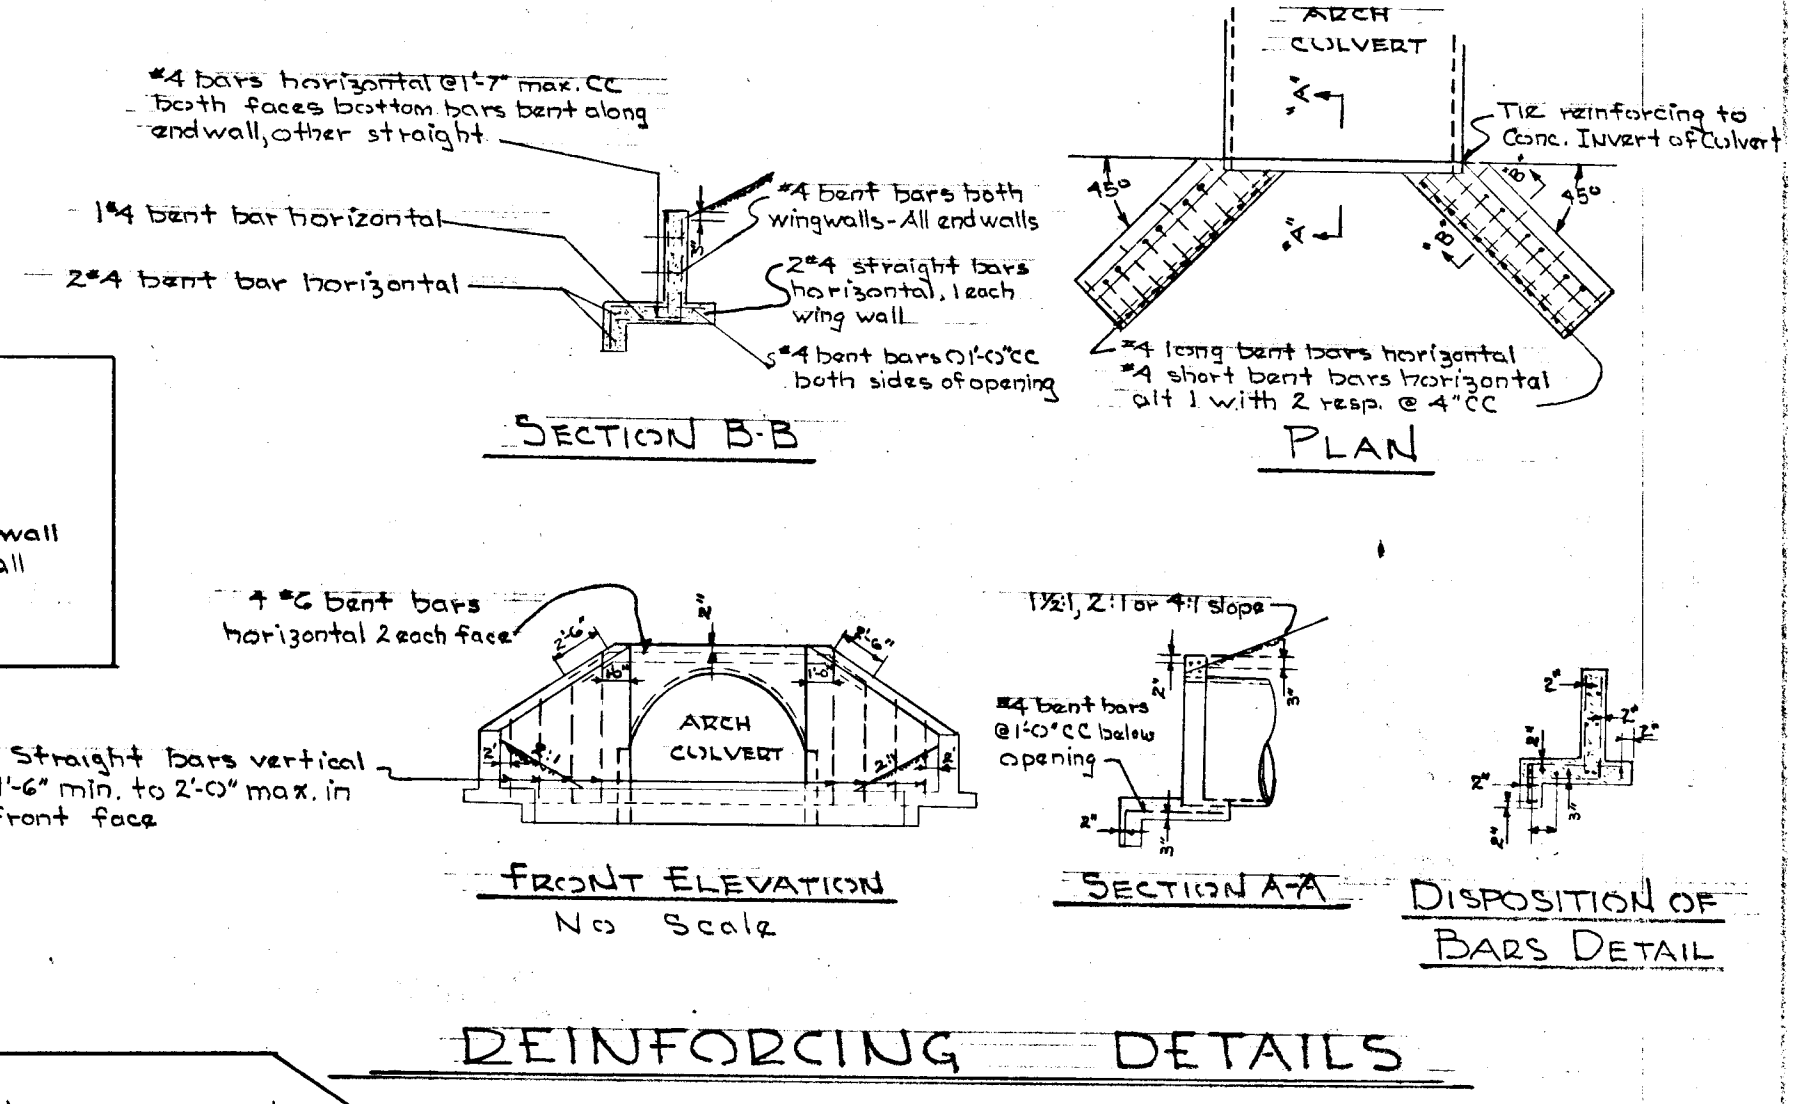 #4 bars horizontal @1'-7" max. CC
both faces bottom bars bent along
endwall, other straight
1#4 bent bar horizontal
2#4 bent bar horizontal
#4 bent bars both
wingwalls-All endwalls
3"
2#4 straight bars
horizontal, 1 each
wing wall
#4 bent bars @ 1'-0"CC
both sides of opening
SECTION B-B
ARCH
CULVERT
"A"
"A"
Tie reinforcing to
Conc. Invert of Culvert
45°
45°
"B"
"B"
#4 long bent bars horizontal
#4 short bent bars horizontal
alt 1 with 2 resp. @ 4"CC
PLAN
wall
all
4 #6 bent bars
horizontal 2 each face
2'-6"
2"
2'-6"
1'-0"
1'-0"
ARCH
CULVERT
2'
2:1
2:1
2'
Straight bars vertical
1'-6" min. to 2'-0" max. in
front face
FRONT ELEVATION
No Scale
1½:1, 2:1 or 4:1 slope
2"
3"
#4 bent bars
@1'-0"CC below
opening
2"
3"
SECTION A-A
2"
2"
2"
2"
2"
2"
3"
DISPOSITION OF
BARS DETAIL
REINFORCING DETAILS